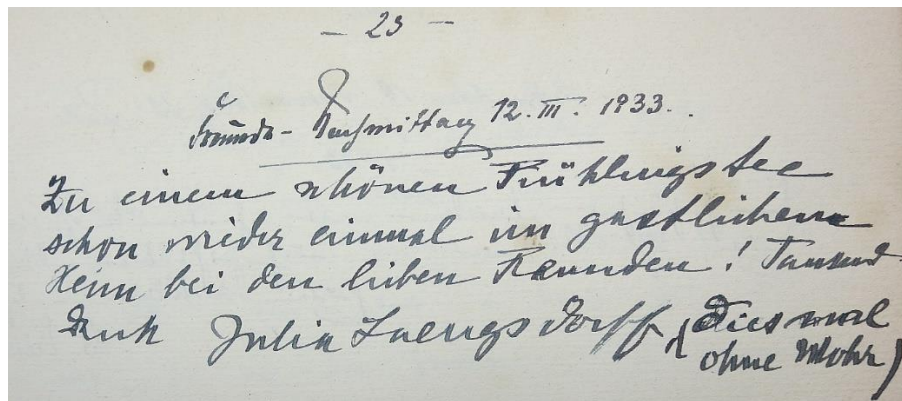 – 23 –
Freunde-Nachmittag 12. III. 1933.
Zu einem schönen Frühlingstee
schon wieder einmal im gastlichen
Heim bei den lieben Freunden! Tausend
Dank Julia (Diesmal
ohne Mohr)